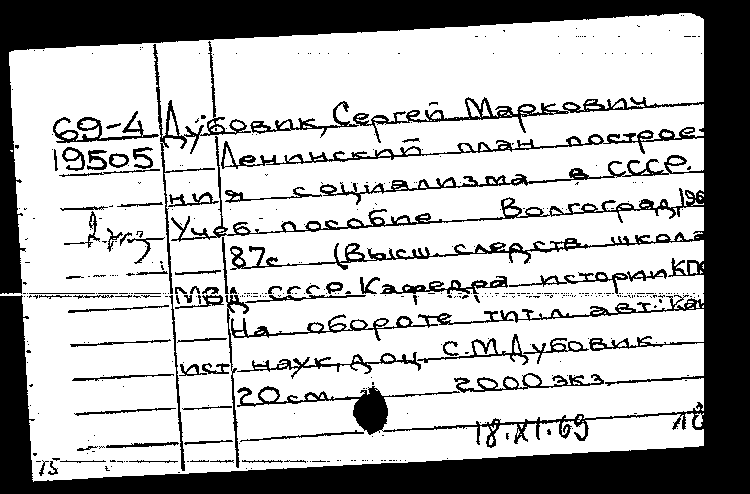 69-4 Дубовик, Сергей Маркович
19505 Ленинский план построе-
ния социализма в СССР.
2 экз Учеб. пособие. Волгоград, 196
87с (Высш. следств. школа
МВД СССР. Кафедра истории КПС
На обороте тит.л. авт.: кан
ист. наук, доц. С.М.Дубовик
20 см. 2000 экз.
18.XI.69 18
15